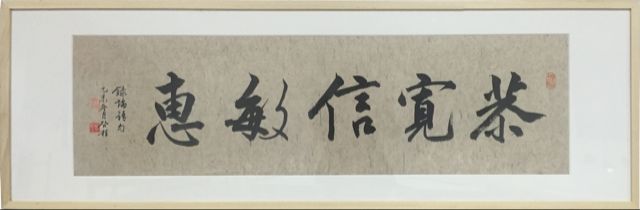 恭寬信敏惠
錄論語句